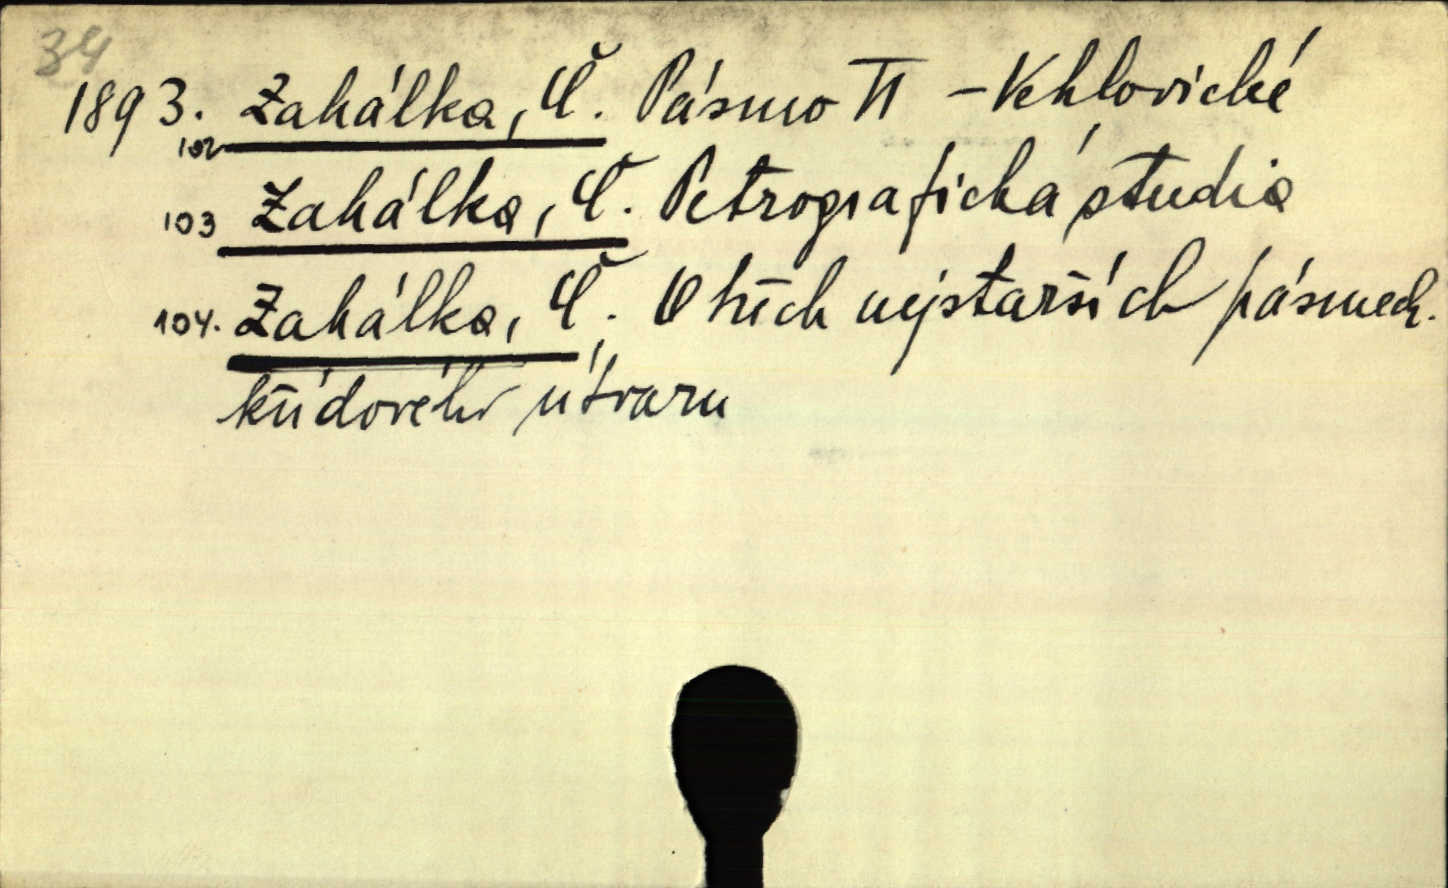 34
1893. Zahálka, Č. Pásmo II - Vehlovické
102
103 Zahálka, Č. Petrografická studia
104. Zahálka, Č. O třech nejstarších pásmech.
křídového útvaru